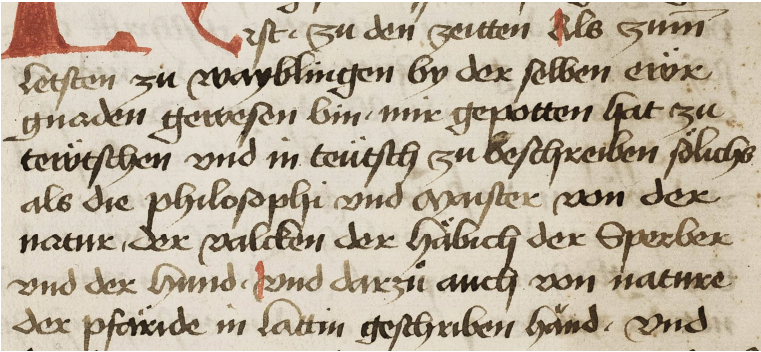 rst. zu den zeitten Als zum̄
letsten zu wayblingen by der selben ewr
gnaden gewesen bin. mir gepotten hat zu
tewtschen vnd in teütsch zu beschreiben sölichs
als die philosophi vnd Maister von der
natur. der valcken der häbich der Sperber
vnd der hund. vnd darzü auch von nature
der pfäride in lattin geschriben händ. Vnd